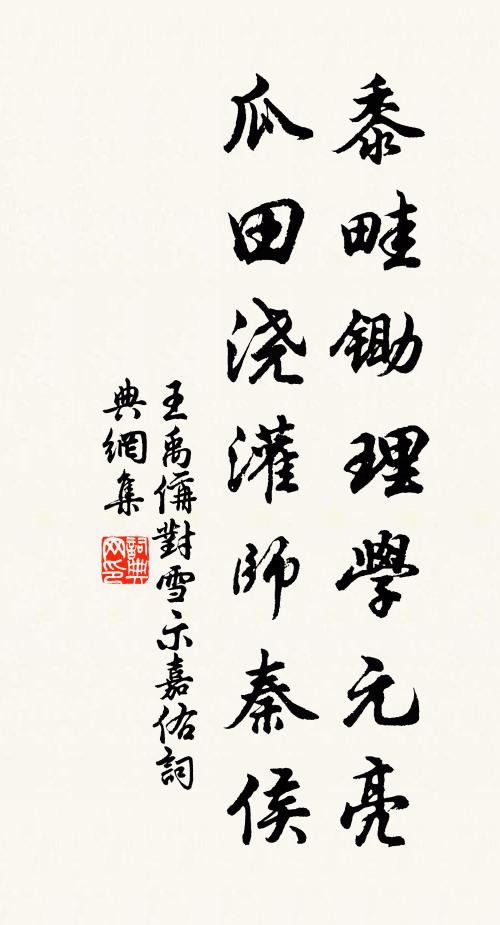 黍畦鋤理學元亮
瓜田浇灌師秦侯
王禹偁對雪示嘉佑詞
典網集
詞典网印